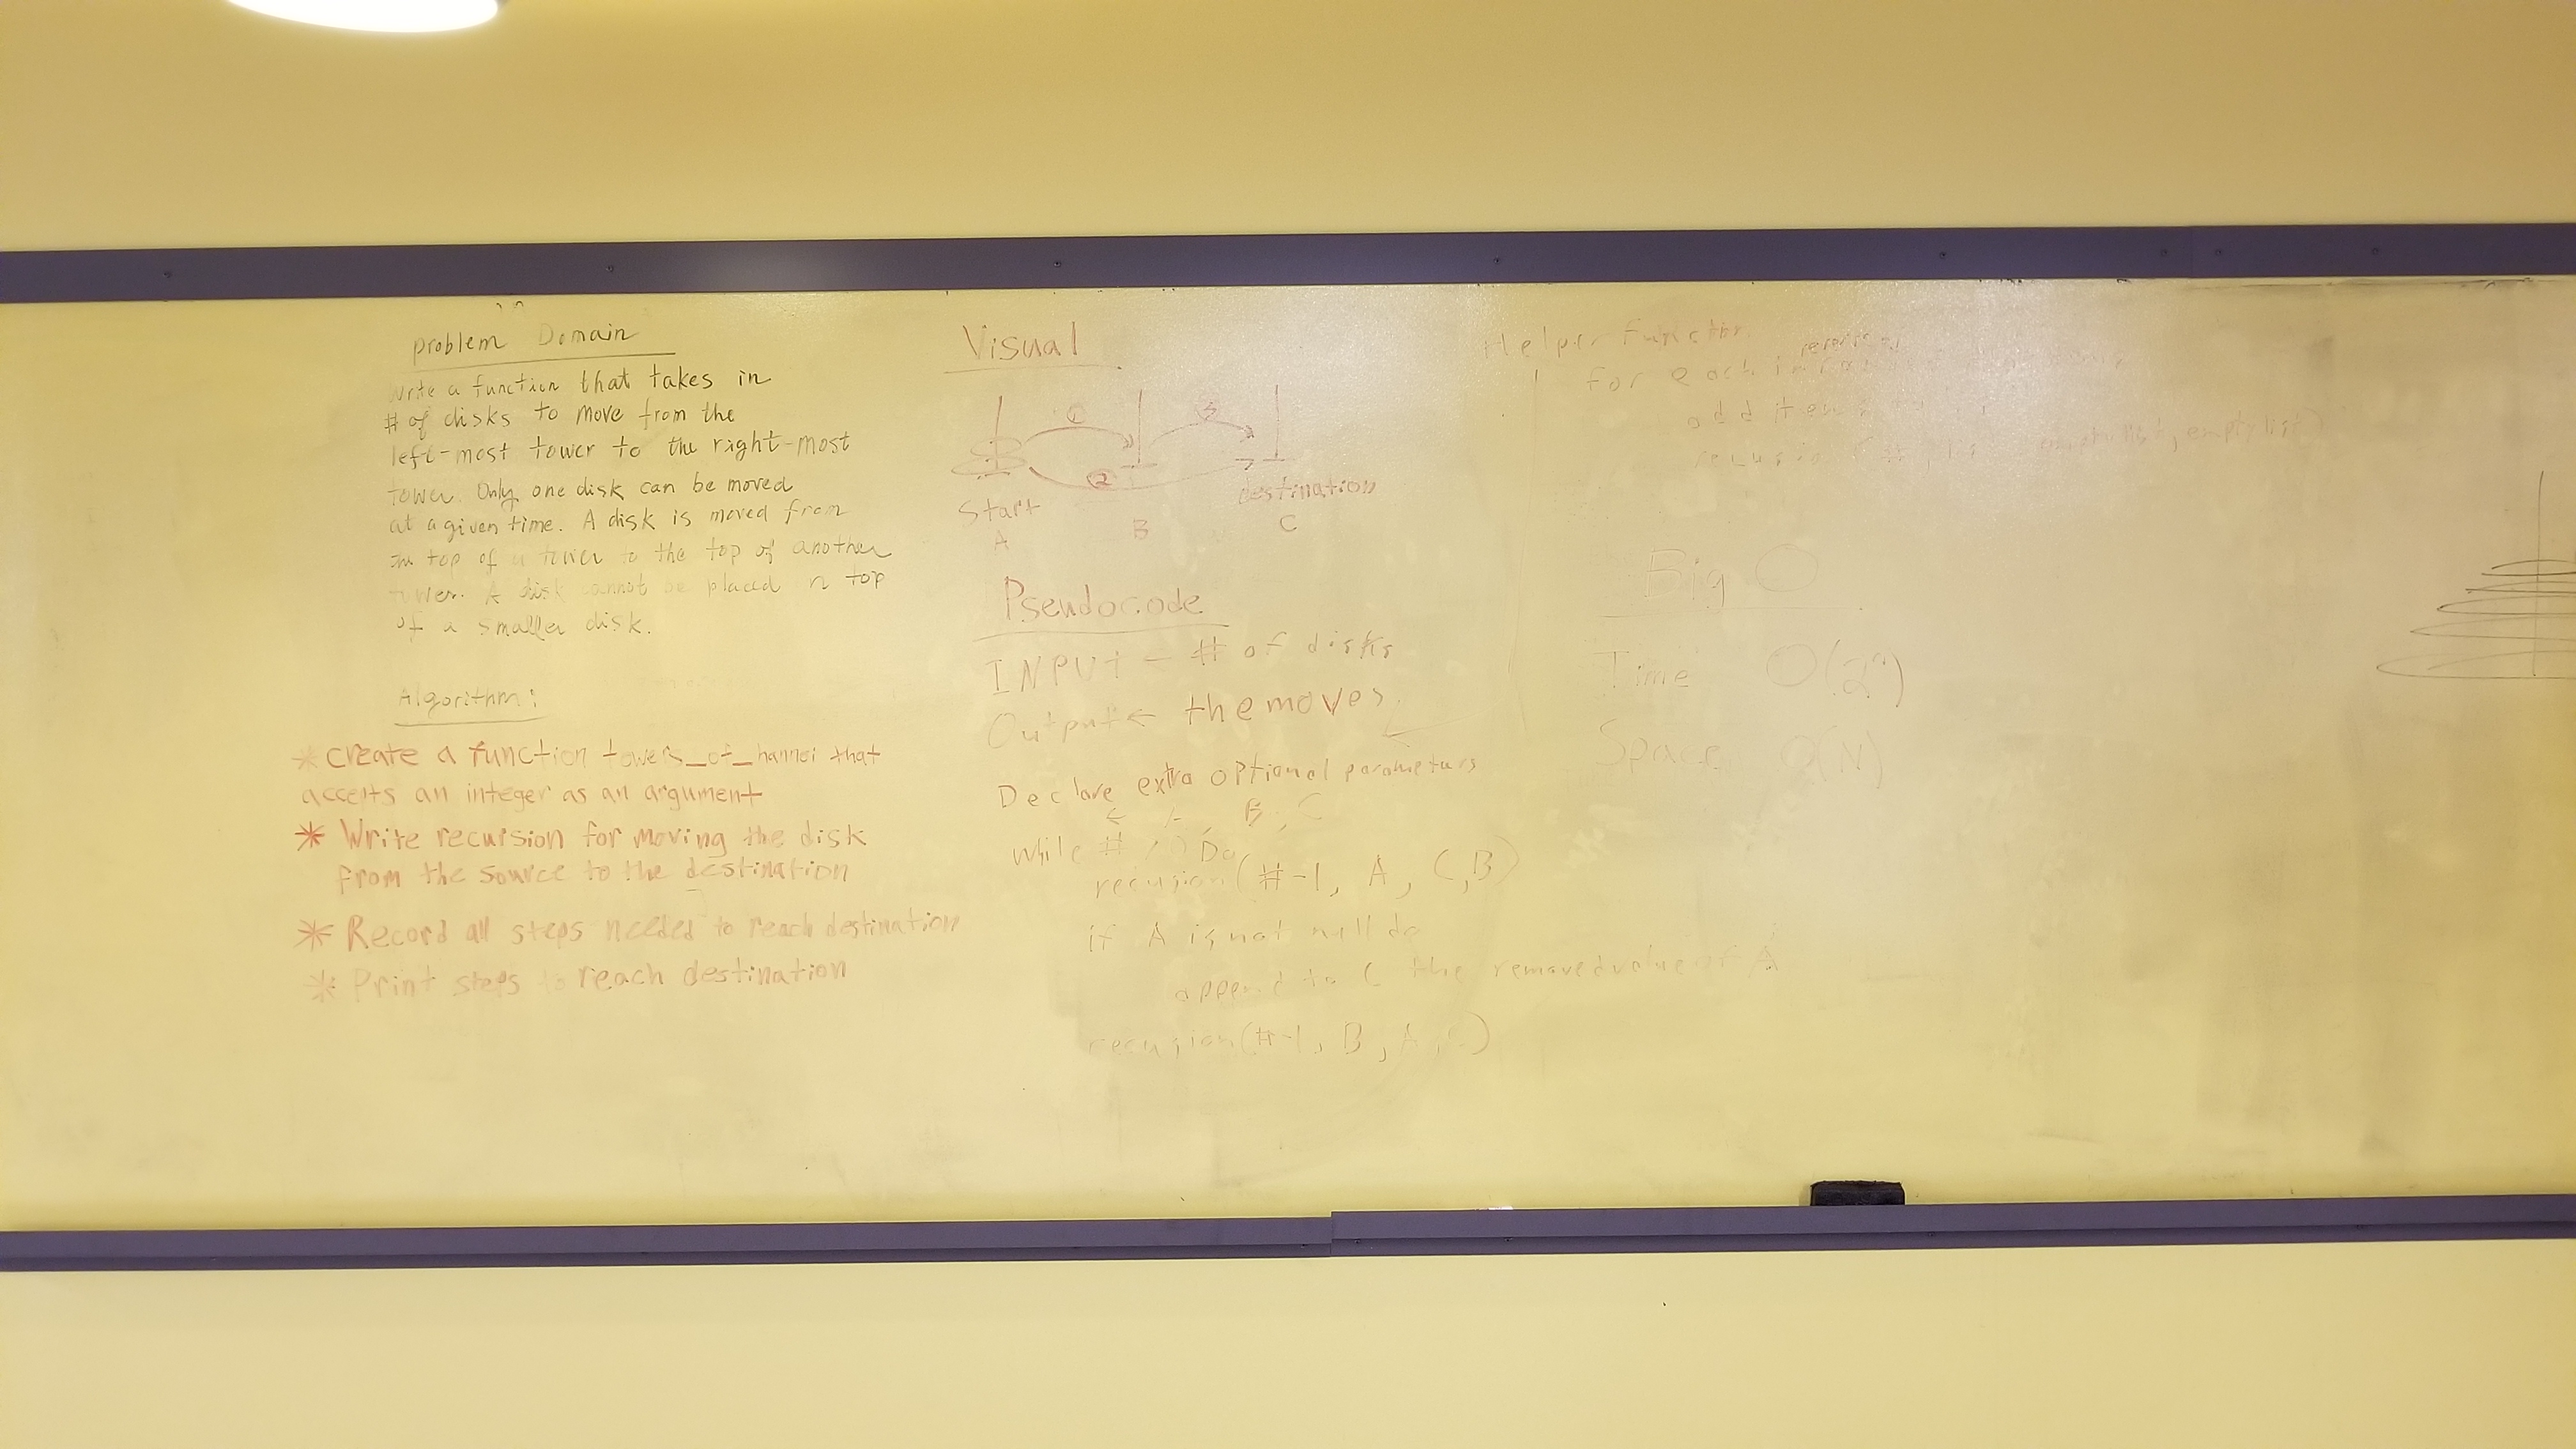 Problem Domain
Write a function that takes in
# of disks to move from the
left-most tower to the right-most
tower. Only one disk can be moved
at a given time. A disk is moved from
the top of a tower to the top of another
tower. A disk cannot be placed on top
of a smaller disk.
Algorithm:
* Create a function towers_of_hannoi that
accepts an integer as an argument
* Write recursion for moving the disk
from the source to the destination
* Record all steps needed to reach destination
* Print steps to reach destination
Visual
1 3
2
Start destination
A B C
Pseudocode
INPUT ← # of disks
Output ← the moves
Declare extra optional parameters
← A, B, C
while # > 0 Do
recusion(#-1, A, C, B)
if A is not null do
append to C the removed value of A
recusion(#-1, B, A, C)
Helper Function
for each in
add
recusion emptylist, emptylist)
Big O
Time O(2ⁿ)
Space O(N)